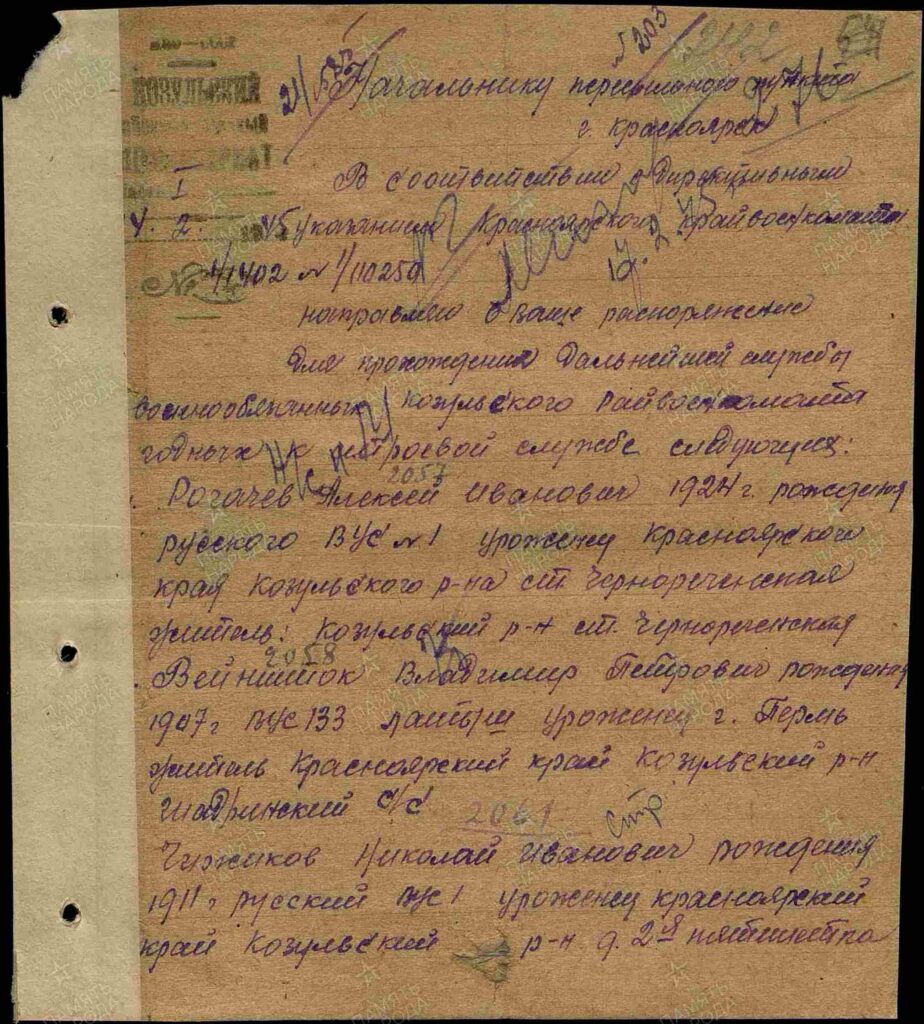 НКО — СССР
КОЗУЛЬСКИЙ
№ 203
242
Начальнику пересыльного пункта
г. Красноярск
I
В соответствии с Директивным
Ч. 2. 45 указанием Красноярского крайвоенкомата
17.2.45
№ 1/1402 и 1/110259
направляю в Ваше распоряжение
для прохождения дальнейшей службы
военнообязанных Козульского Райвоенкомата
годных к строевой службе следующих:
2057
Рогачев Алексей Иванович 1924 г. рождения
русского ВУС №1 уроженец Красноярского
края Козульского р-на ст. Чернореченская
житель: Козульский р-н ст. Чернореченская
2058
Вейншток Владимир Петрович рождения
1907 г ВУС 133 латыш уроженец г. Пермь
житель Красноярский край Козульский р-н
Шадринский с/с
2061 стр
Чижиков Николай Иванович рождения
1911 г русский ВУС 1 уроженец Красноярский
край Козульский р-н д. 2ая пятилетка